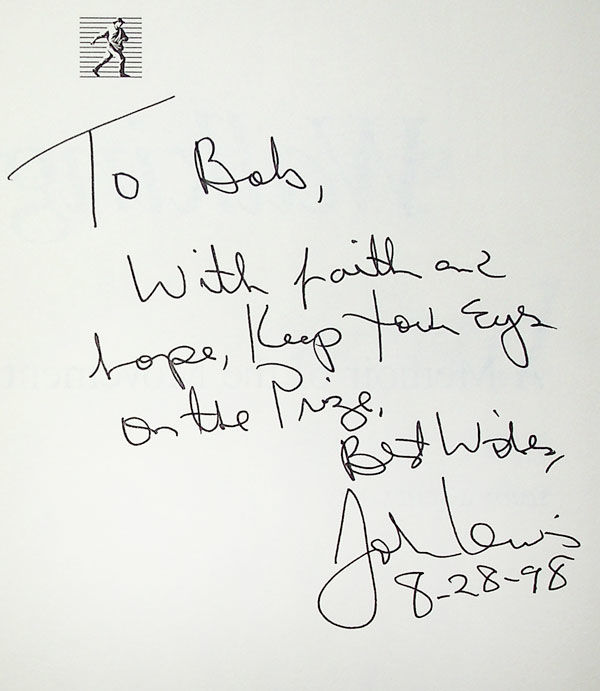 To Bob,
With faith and
hope, Keep your Eyes
on the Prize.
Best Wishes,
John Lewis
8-28-98